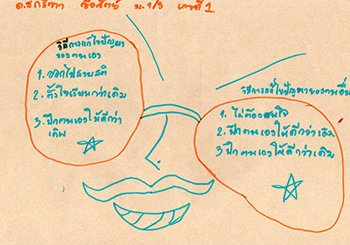 ม.1/3 เลขที่ 1
วิธีการแก้ไขปัญหา
ของตนเอง
1. ออกไปสงบสติ
2. ตั้งใจเรียนกว่าเดิม
3. ฝึกตนเองให้ดีกว่า
เดิม
วิธีการแก้ไขปัญหาของคนอื่น
1. ไม่ต้องสนใจ
2. ฝึกตนเองให้ดีกว่าเดิม
3. ฝึกตนเองให้ดีกว่าเดิม